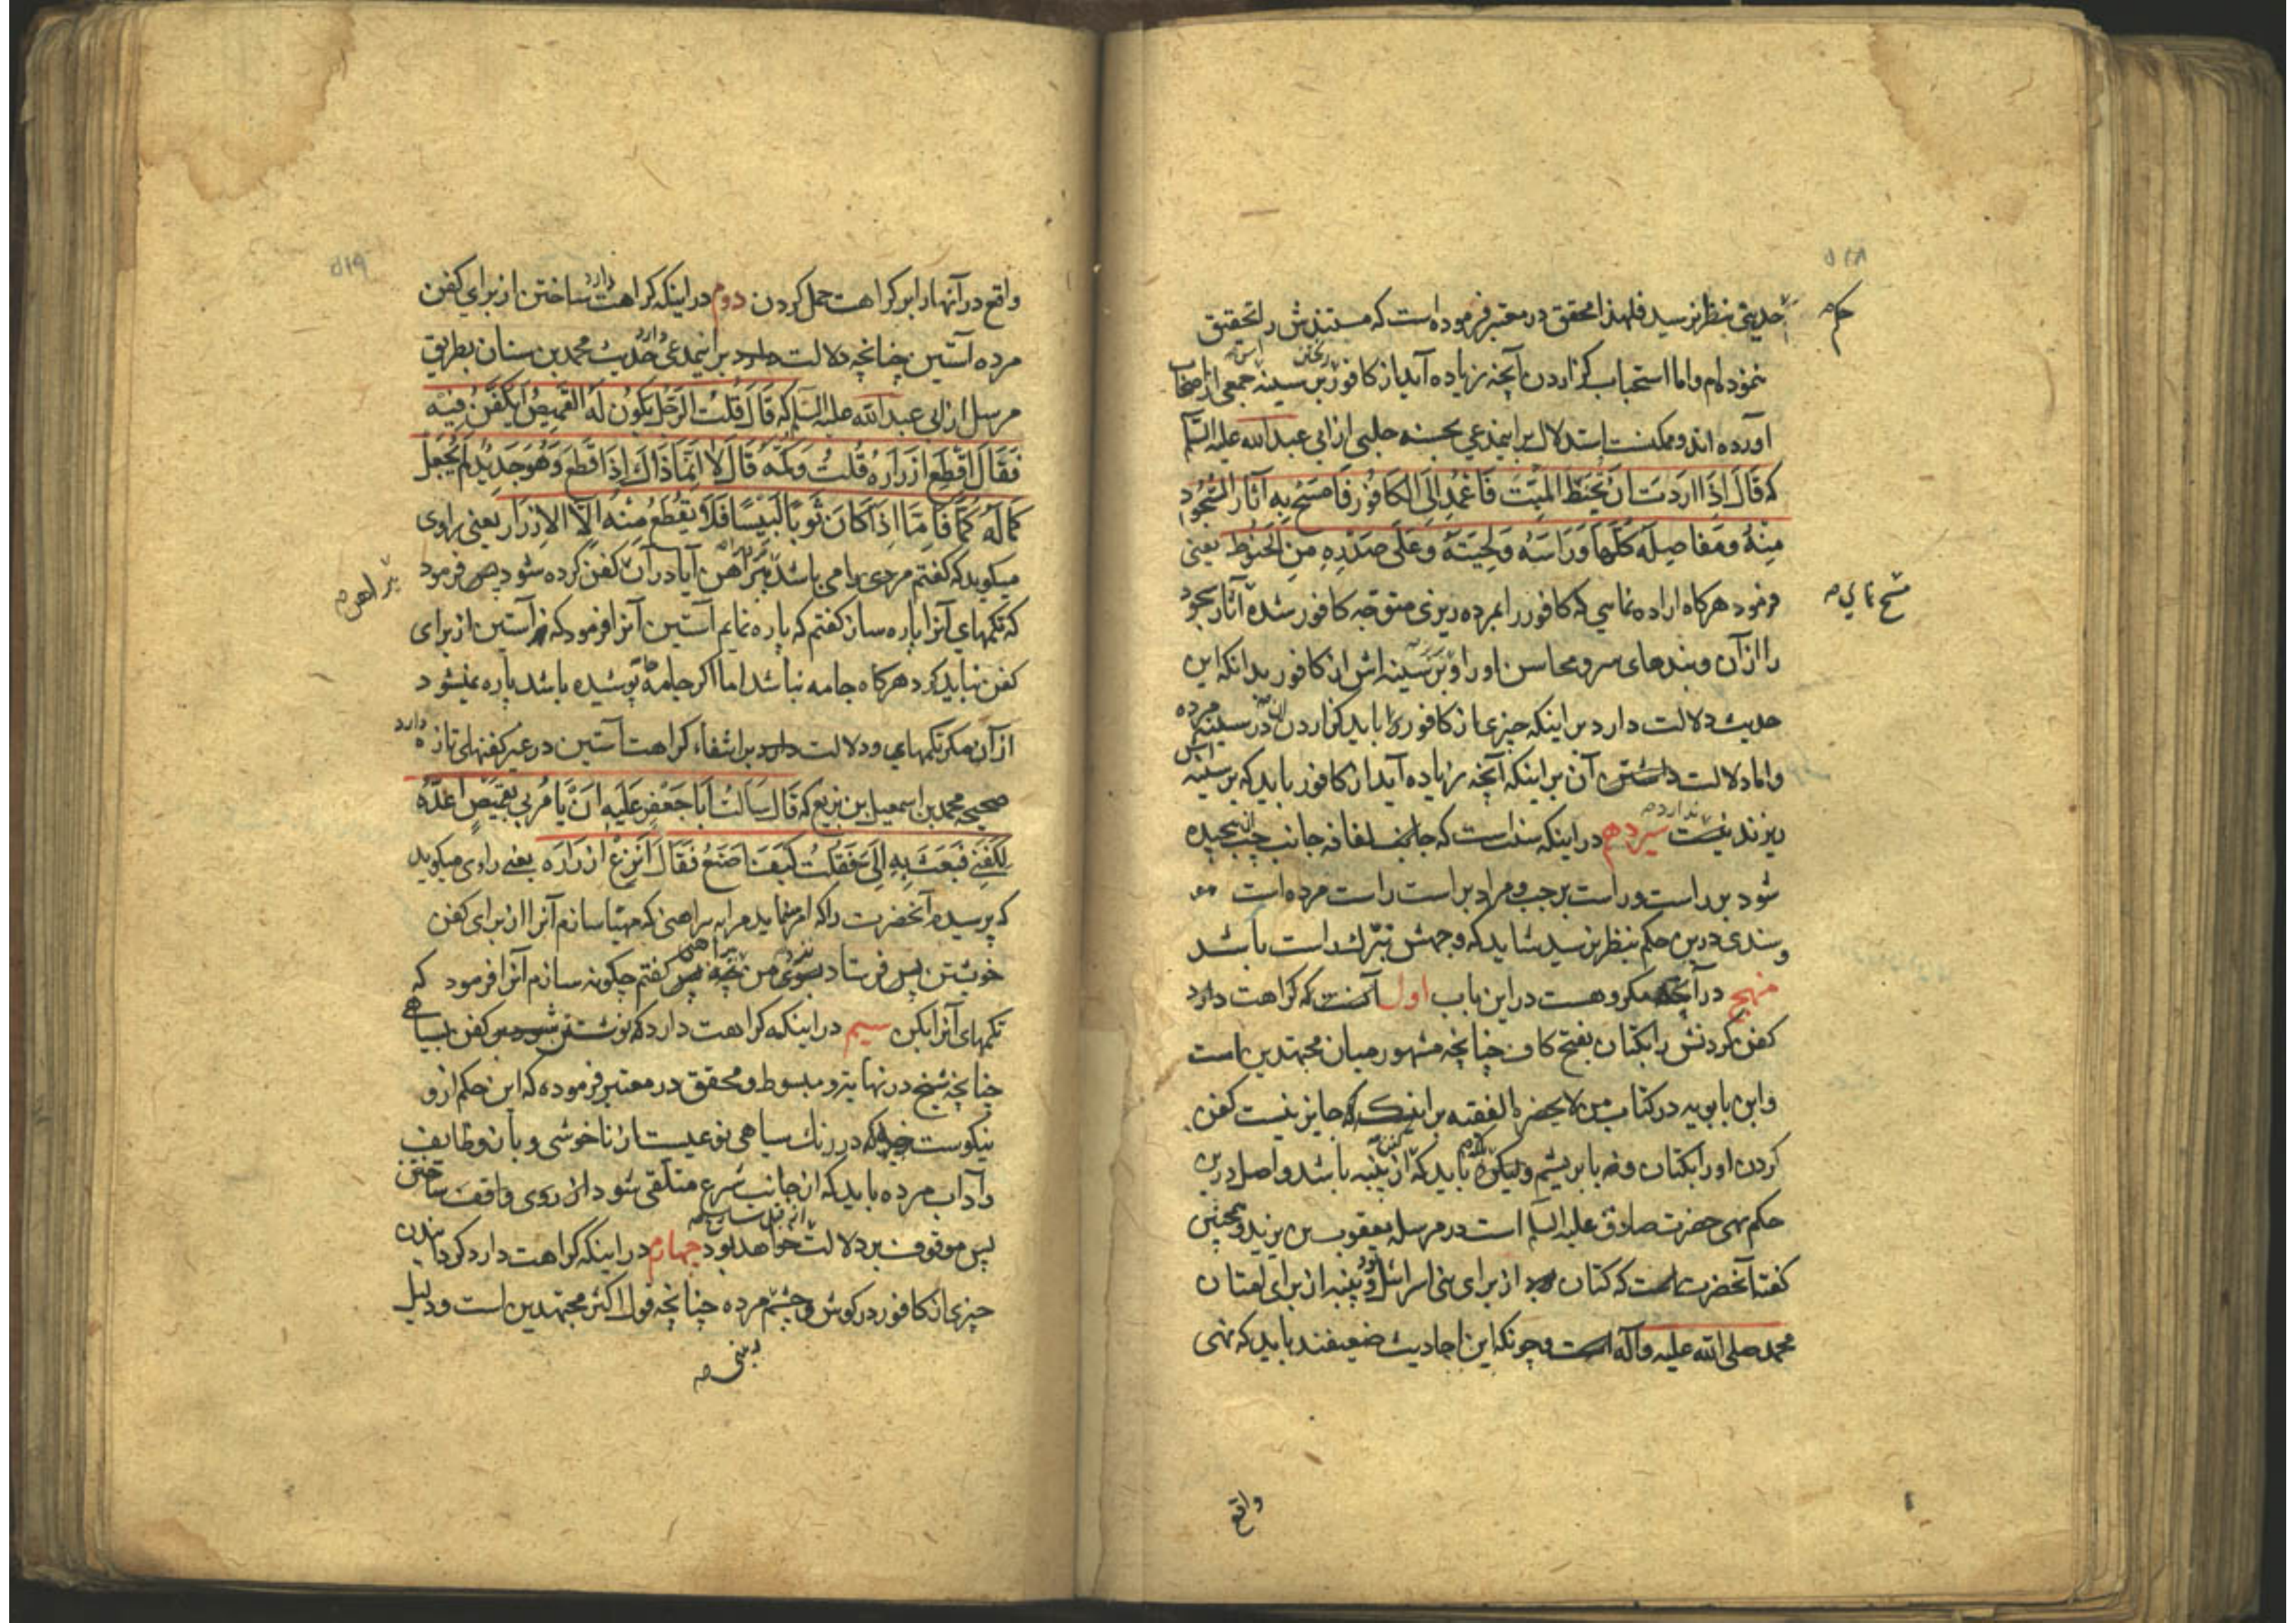 ۵۱۸
حدیثی بنظر نرسید فلهذا محقق در معتبر فرموده است که مستندش را تحقیق
نموده‌ام و اما استحباب گزاردن آنچه زیاده آید از کافور بر سینه جمعی از اصحاب
آورده‌اند و ممکنست استدلال بر اینمدعی بحسنه حلبی از ابی عبد الله علیه السلم
که قَالَ اِذَا اَرَدْتَ اَنْ تُحَنِّطَ الْمَیِّتَ فَاعْمُدْ اِلَی الْکَافُورِ فَامْسَحْ بِهِ آثَارَ السُّجُودِ
مِنْهُ وَمَفَاصِلَهُ کُلَّهَا وَرَاسَهُ وَلِحْیَتَهُ وَعَلَی صَدْرِهِ مِنَ الْحَنُوطِ یعنی
فرمود هرکاه اراده نمائی که کافور را بمرده ریزی متوجه کافور شده آثار سجود
مسح نمای
را از آن و بندهای سر و محاسن او را و بر سینه‌اش از کافور بدانکه این
حدیث دلالت دارد بر اینکه چیزی از کافور را باید گزاردن در سینه مرده
و اما دلالت داشتن آن بر اینکه آنچه زیاده آید از کافور باید که بر سینه اش
ریزند نیست ندارد سیزدهم در اینکه سنت است که جانب لفافه جانب چپ پیچیده
شود بر راست و راست بر چپ و مراد براست راست مرده است
و سندی درین حکم بنظر نرسید شاید که وجهش تبرک راست باشد
منهج در آنچه مکروهست در این باب اول آنست که کراهت دارد
کفن کردنش را بکتان بفتح کاف چنانچه مشهور میان مجتهدین است
و ابن بابویه در کتاب من لا یحضره الفقیه بر اینست که جایز نیست کفن
کردن او را بکتان و نه بابریشم ولیکن باید که از پنبه باشد و اصل درین
حکم نهی حضرت صادق علیه السلم است در مرسله یعقوب بن یزید و همچنین
گفته آنحضرت است که کتان از برای بنی اسرائیل بود و پنبه از برای امتان
محمد صلی الله علیه و آله است و چونکه این احادیث ضعیفند باید که نهی
واقع
۵۱۹
واقع در آنها را بر کراهت حمل کردن دوم در اینکه کراهت دارد ساختن از برای کفن
مرده آستین چنانچه دلالت دارد بر اینمدعی حدیث محمد بن سنان بطریق
مرسل از ابی عبد الله علیه السلم که قَالَ قُلْتُ الرَّجُلُ یَکُونُ لَهُ الْقَمِیصُ اَیُکَفَّنُ فِیهِ
فَقَالَ اقْطَعْ اَزْرَارَهُ قُلْتُ وَکُمَّهُ قَالَ لَا اِنَّمَا ذَاکَ اِذَا قُطِعَ وَهُوَ جَدِیدٌ لَمْ یُجْعَلْ
لَهُ کُمّاً فَاَمَّا اِذَا کَانَ ثَوْباً لَبِیساً فَلَا یُقْطَعُ مِنْهُ اِلَّا الْاَزْرَارُ یعنی راوی
میکوید که کفتم مردی را می باشد پیراهن آیا در آن کفن کرده شود پس فرمود
پیراهن
که تکمهای آنرا پاره ساز کفتم که پاره نمایم آستین آنرا فرمود که نه آستین از برای
کفن نباید کرد هرکاه جامه نباشد اما اکر جامهٔ پوشیده باشد پاره نمیشود
از آن مکر تکمهای و دلالت دارد بر انتفاء کراهت آستین در غیر کفنهای تازه دارد
صحیحه محمد بن اسمعیل بن بزیع که قَالَ سَاَلْتُ اَبَا جَعْفَرٍ عَلَیْهِ اَنْ یَأمُرَ لِی بِقَمِیصٍ اُعِدُّهُ
لِکَفَنِی فَبَعَثَ بِهِ اِلَیَّ فَقُلْتُ کَیْفَ اَصْنَعُ فَقَالَ انْزِعْ اَزْرَارَهُ یعنی راوی میکوید
که پرسیدم آنحضرت را که امر نماید مرا به پیراهنی که مهیا سازم آنرا از برای کفن
خویشتن پس فرستاد بسوی من پیراهنی پس کفتم چکونه سازم آنرا فرمود که
تکمهای آنرا بکن سیم در اینکه کراهت دارد که نوشتن بر کفن بسیاهی
چنانچه شیخ در نهایه و مبسوط و محقق در معتبر فرموده که این حکم از و
نیکوست که در رنک سیاهی نوعیست از ناخوشی و بآن وظایف
و آداب مرده باید که از جانب شرع متلقی شود از روی واقف ساختن
پس موقوف بر دلالت خواهد بود چهارم در اینکه کراهت دارد کردانیدن
چیزی از کافور در کوش و چشم مرده چنانچه قول اکثر مجتهدین است و دلیل